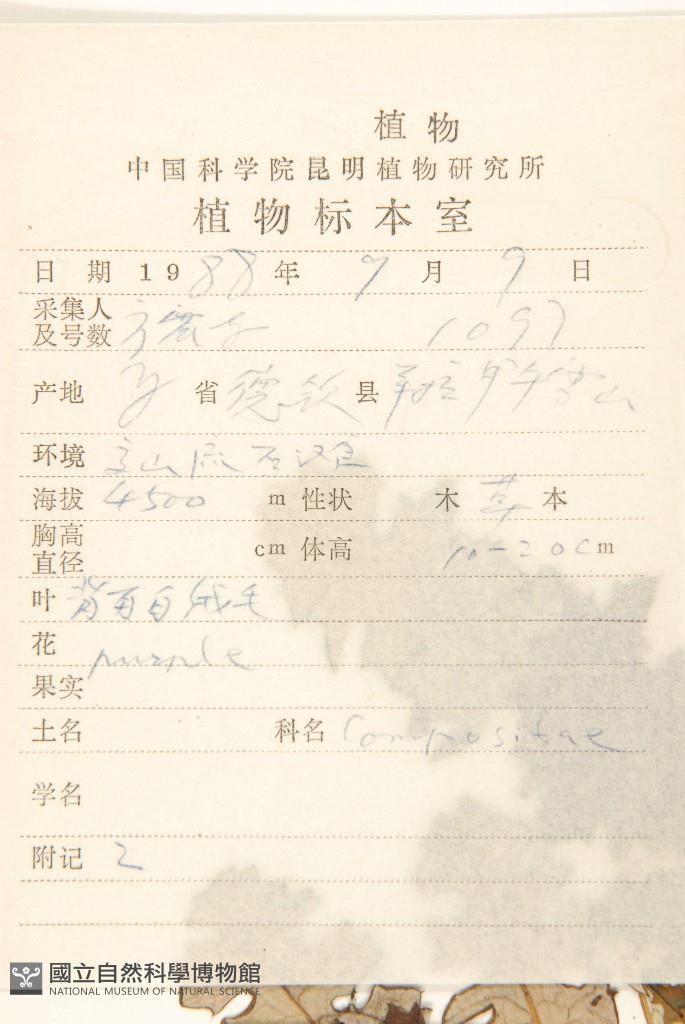 植物
中国科学院昆明植物研究所
植物标本室
日 期 1988 年 7 月 9 日
采集人
及号数 1097
产地 省 德钦 县 雪山
环境 流石滩
海拔 4500 m 性状 木 草 本
胸高
直径 cm 体高 10-20cm
叶 背面白绒毛
花 purple
果实
土名 科名 Compositae
学名
附记 2
國立自然科學博物館
NATIONAL MUSEUM OF NATURAL SCIENCE